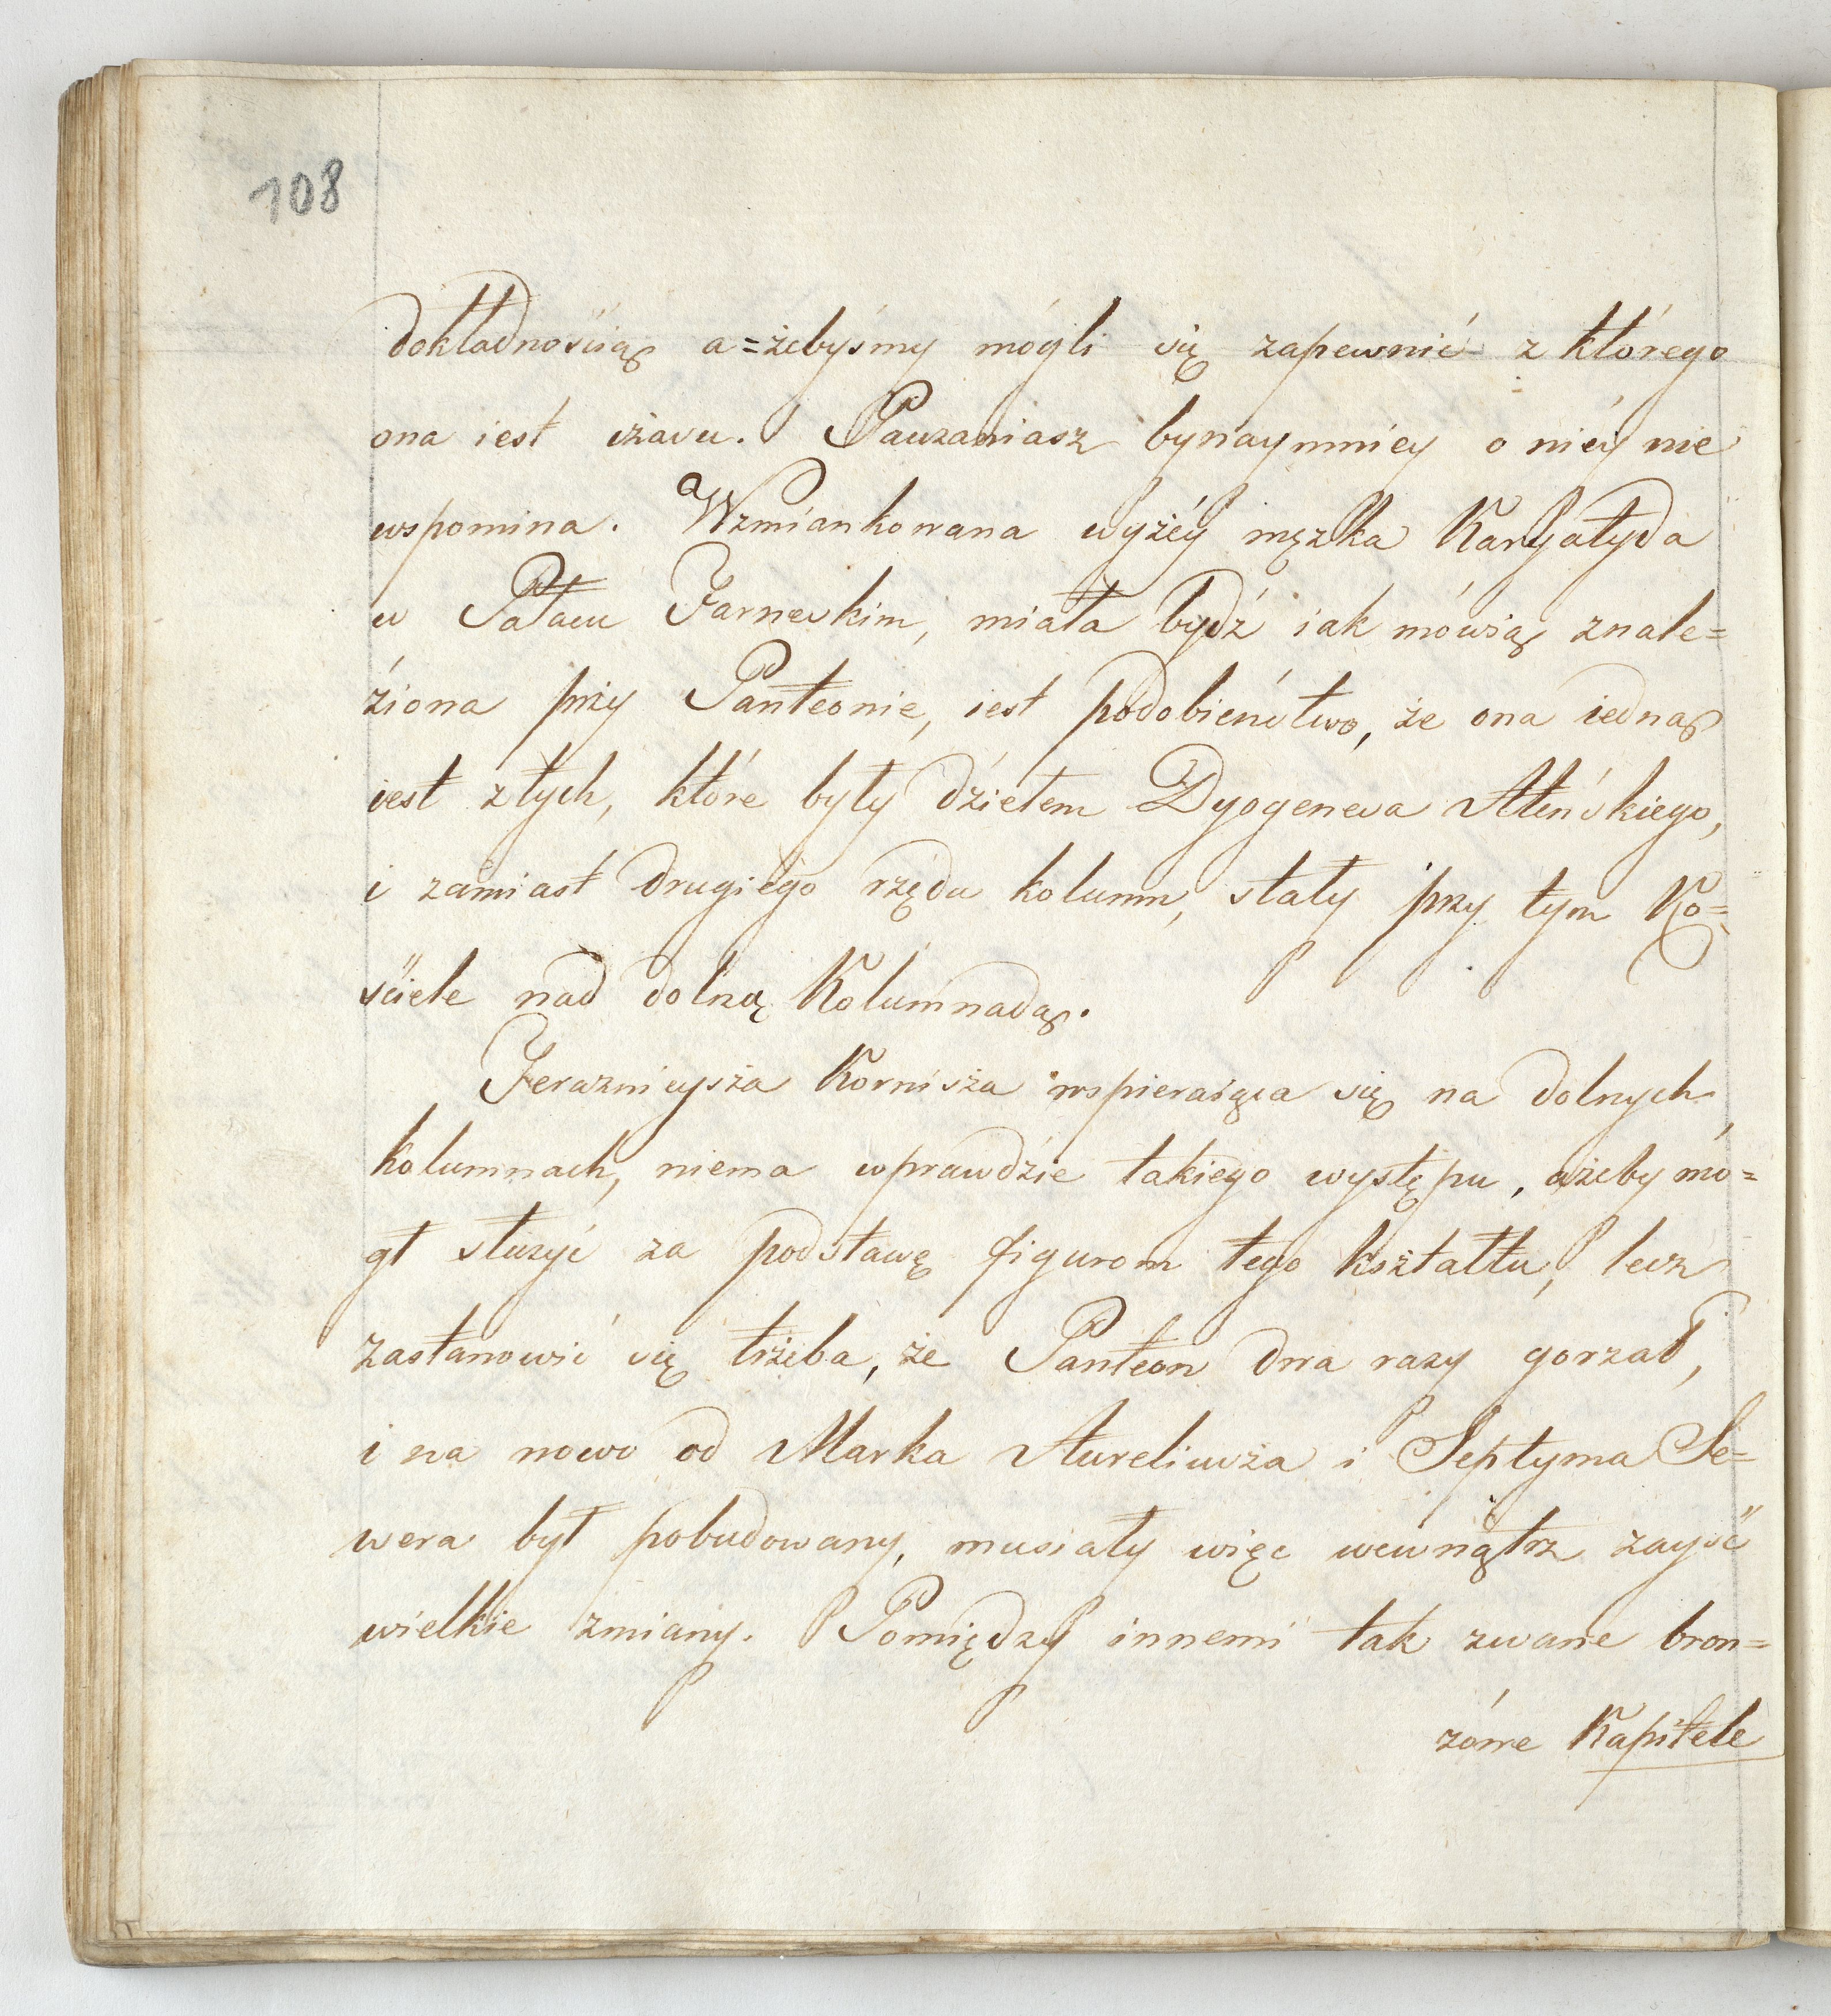 108
dokładnościąs a=żebyśmy mógli się zapewnić z którego
ona iest czasu. Pauzaniasz bynaymniey o niéy nie
wspomina. Wzmiankowana wyżéy męzka Karyatyda
w Pałacu Farneskim, miała bydź iak mówią znale=
źiona przy Panteonie, iest podobieństwo, że ona iedną
iest z tych, które były dźiełem Dyogenesa Ateńskiego,
i zamiast drugiego rzędu kolumn, stały przy tym Ko=
ściele nad dolną Kolumnadą.
Teraznieysza Kornisza wspieraiąca się na dolnych
kolumnach, niema wprawdźie takiego występu, ażeby mó=
gł służyć za podstawę figurom tego kształtu, lecz
zastanowić się trżeba, że Panteon dwa razy gorzał,
i na nowo od Marka Aureliusza i Septyma Se=
wera był pobudowany, musiały więc wewnątrz zayść
wielkie zmiany. Pomiędzy innemi tak zwane bron=
zówe Kapitele